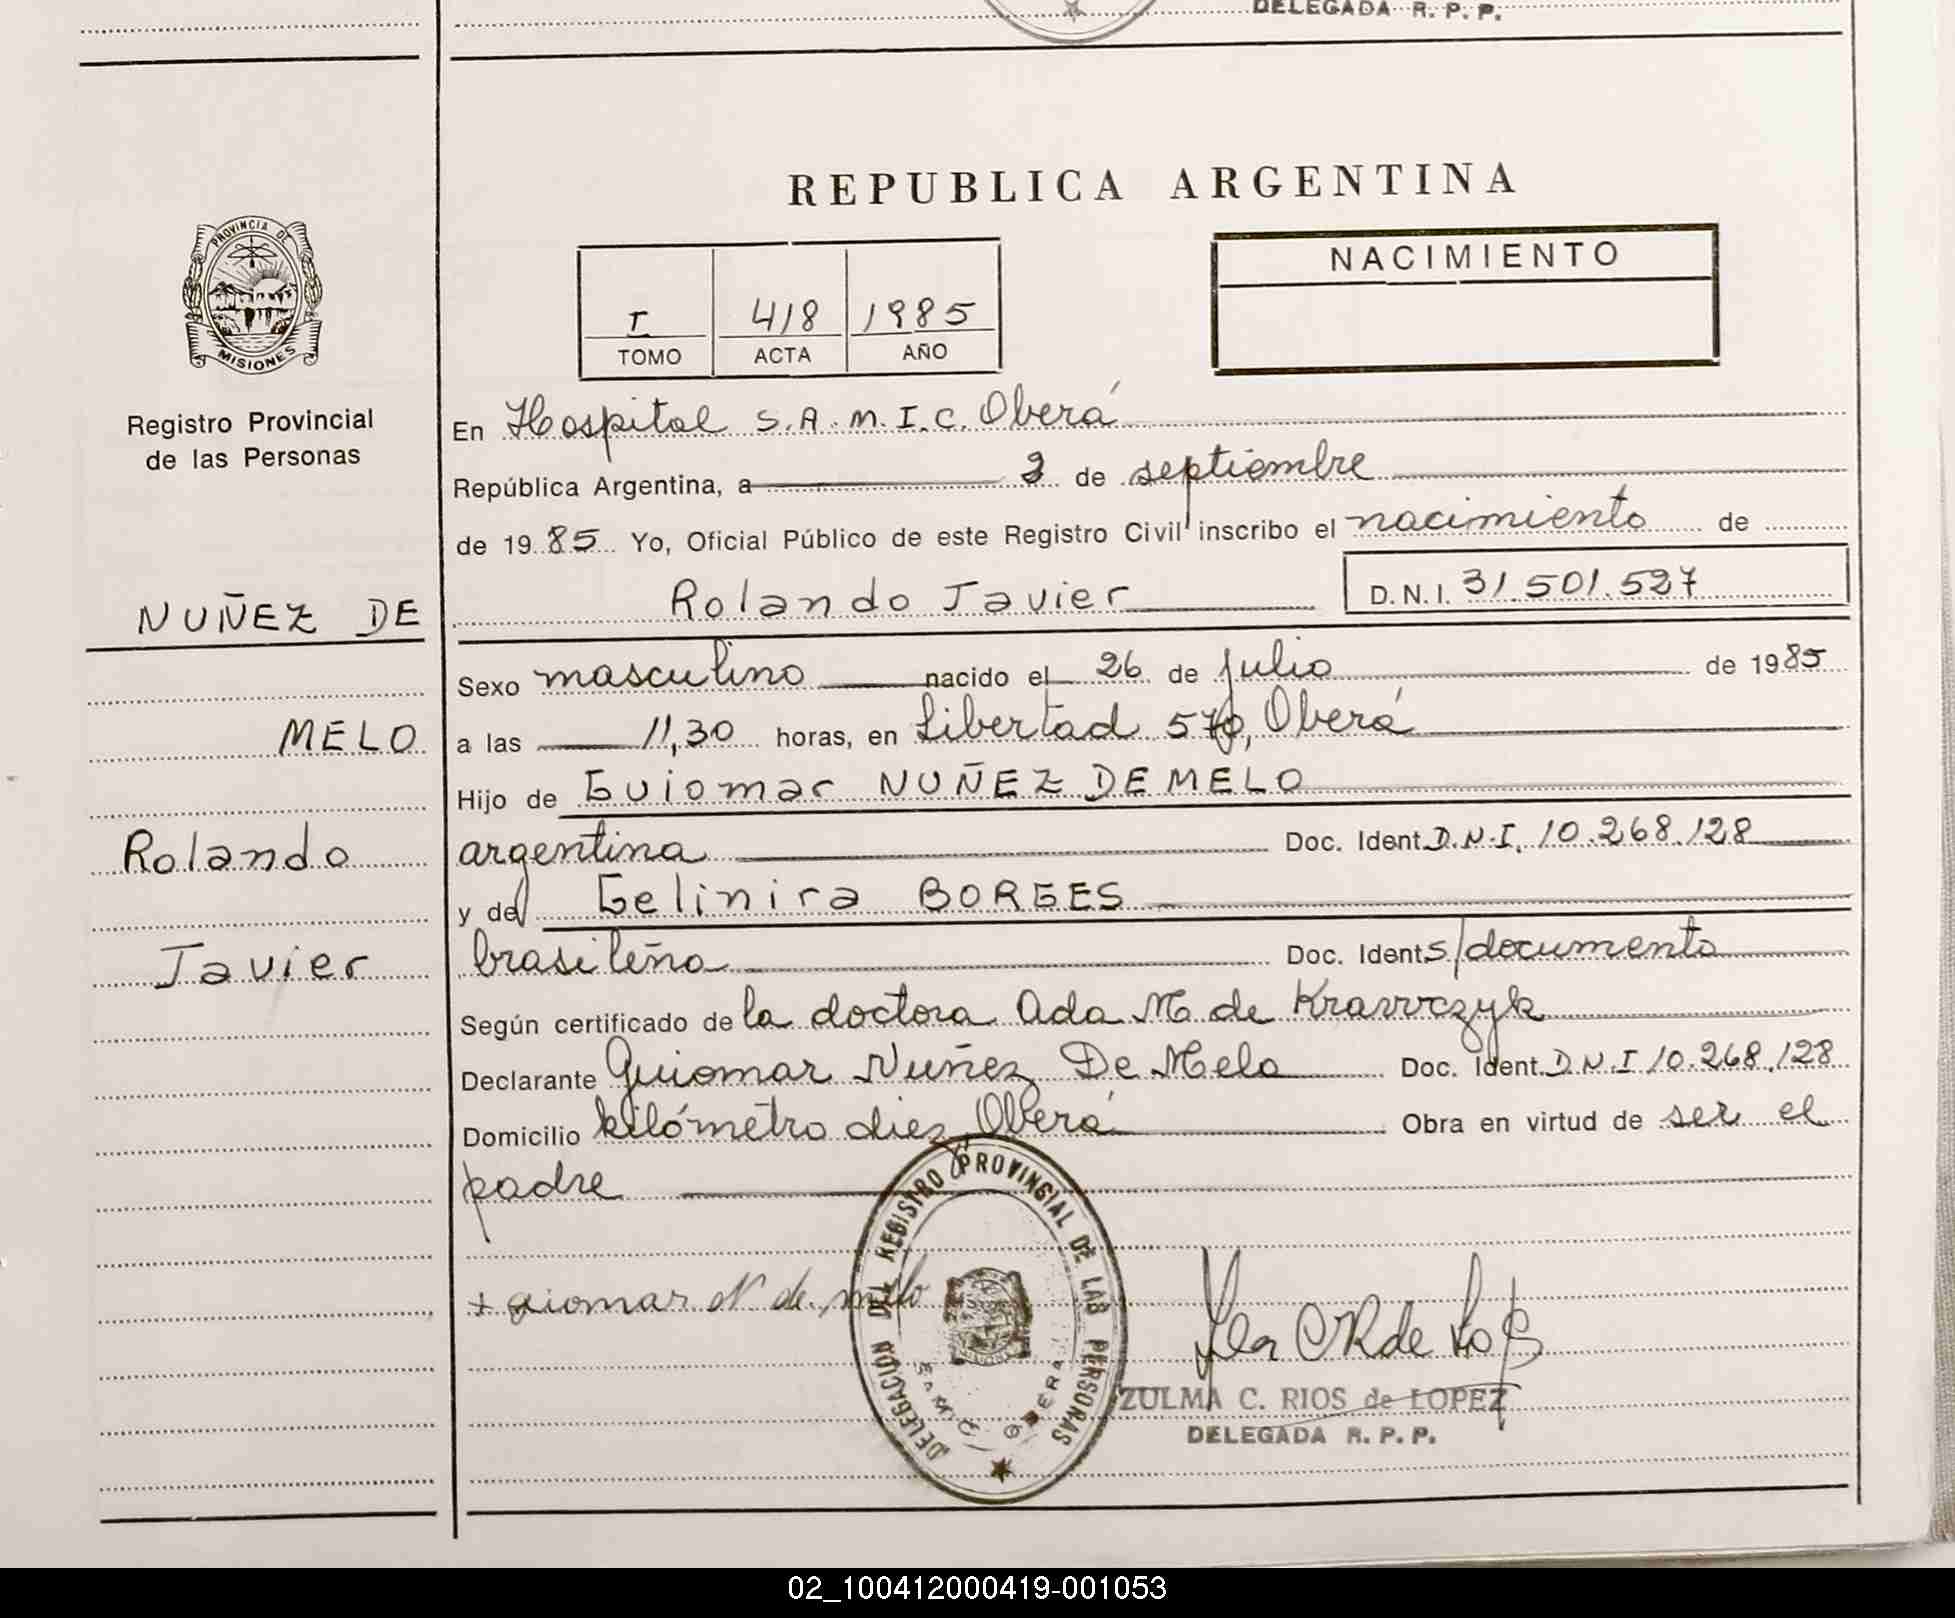 DELEGADA R. P. P.
REPUBLICA ARGENTINA
PROVINCIA DE
MISIONES
Registro Provincial
de las Personas
I 418 1985
TOMO ACTA AÑO
NACIMIENTO
En Hospital S.A.M.I.C. Oberá
República Argentina, a 3 de septiembre
de 1985 Yo, Oficial Público de este Registro Civil inscribo el nacimiento de
Rolando Javier D.N.I. 31.501.527
NUÑEZ DE
MELO
Rolando
Javier
Sexo masculino nacido el 26 de julio de 1985
a las 11,30 horas, en Libertad 570, Oberá
Hijo de Guiomar NUÑEZ DE MELO
argentina Doc. Ident. D.N.I. 10.268.128
y de Gelinira BORGES
brasileña Doc. Ident. s/documento
Según certificado de la doctora Ada M. de Krawczyk
Declarante Guiomar Nuñez De Melo Doc. Ident. D.N.I 10.268.128
Domicilio kilómetro diez, Oberá Obra en virtud de ser el
padre
+ giomar N de melo
DELEGACION DEL REGISTRO PROVINCIAL DE LAS PERSONAS
OBERA
ZULMA C. RIOS de LOPEZ
DELEGADA R. P. P.
02_100412000419-001053